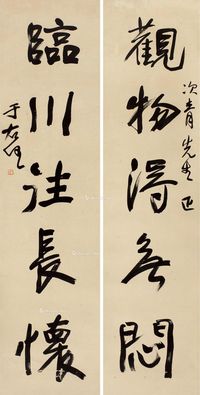 次青先生正
觀物得無悶
臨川注長懷
于右任